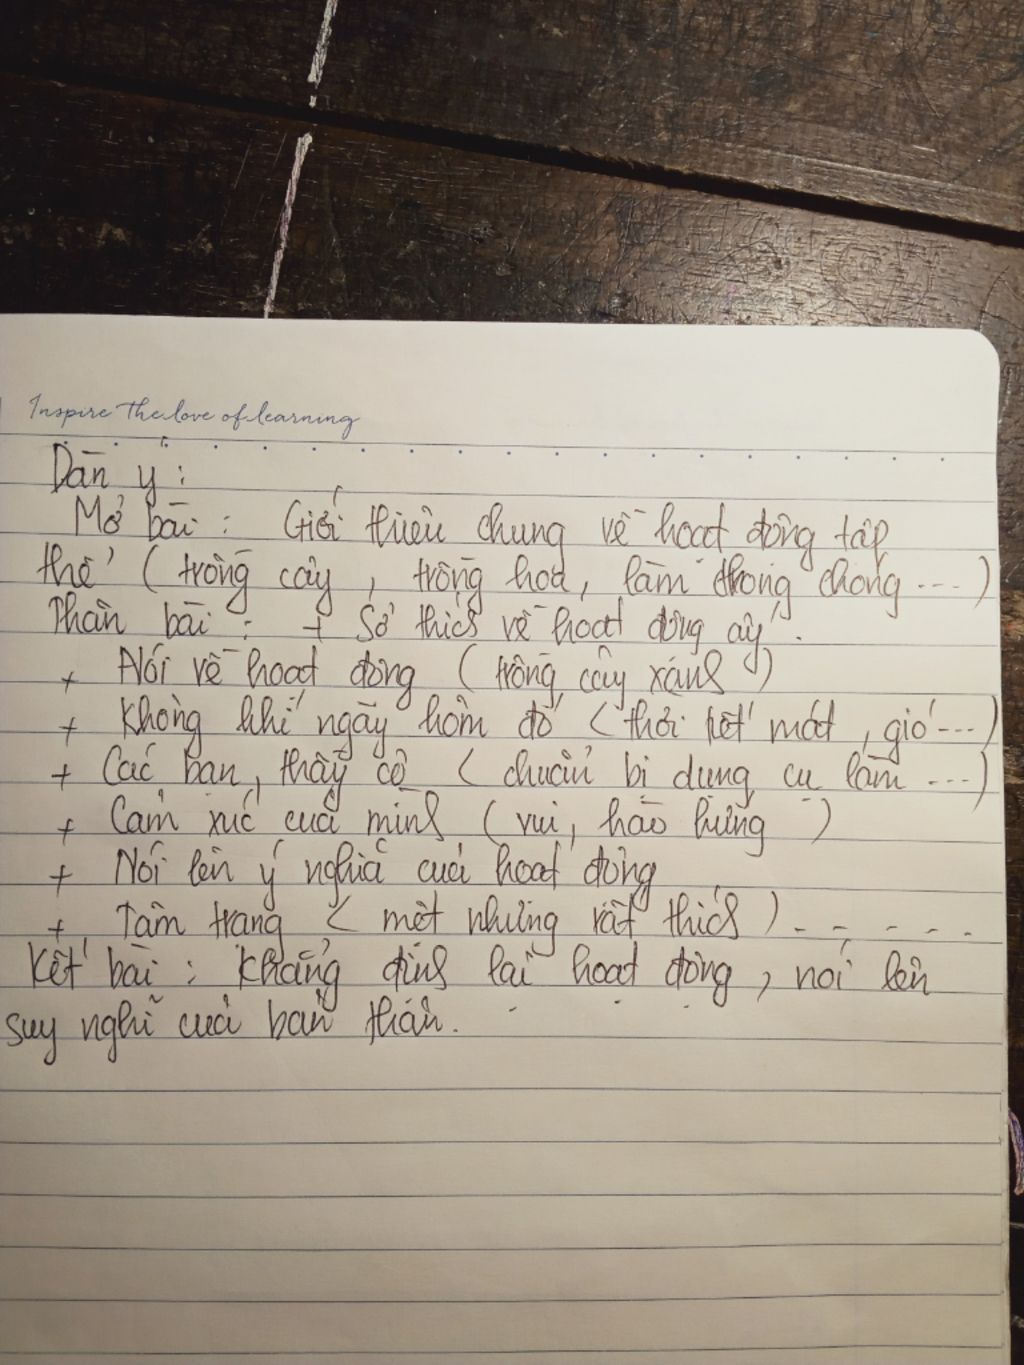 Inspire the love of learning
Dàn ý :
Mở bài : Giới thiệu chung về hoạt động tập
thể ( trồng cây , trồng hoa, làm chong chóng ... )
Thân bài : + Sở thích về hoạt động ấy .
+ Nói về hoạt động ( trồng cây xanh )
+ Không khí ngày hôm đó ( thời tiết mát , gió ... )
+ Các bạn, thầy cô ( chuẩn bị dụng cụ làm ... )
+ Cảm xúc của mình ( vui, hào hứng )
+ Nói lên ý nghĩa của hoạt động
+ Tâm trạng ( mệt nhưng rất thích ) - - - - .
Kết bài : Khẳng định lại hoạt động , nói lên
suy nghĩ của bản thân .